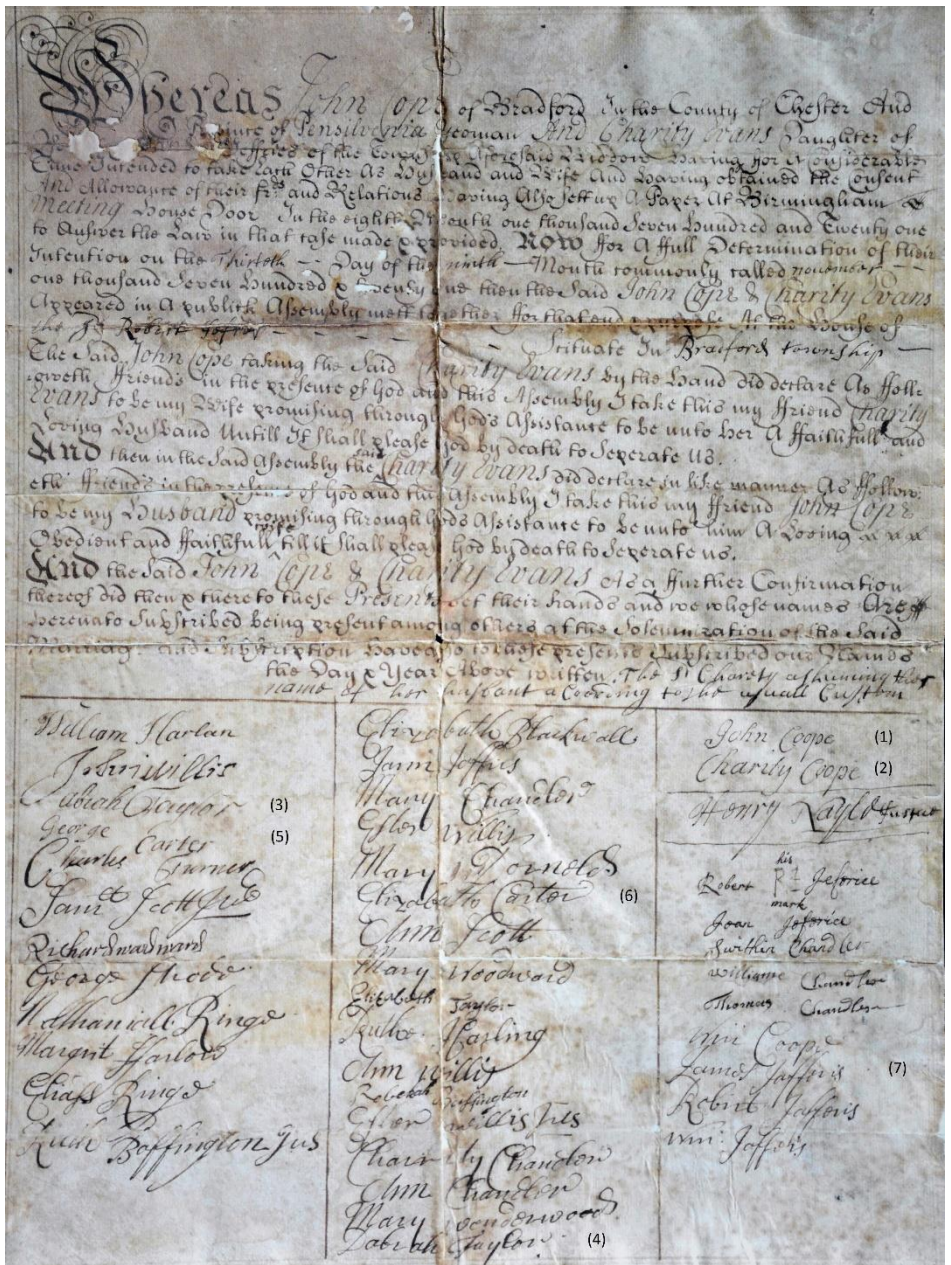 Whereas John Cope of Bradford In the County of Chester And
Province of Pensilvania Yeoman And Charity Evans Daughter of
Jeffries of the County Aforesaid Widdow Having for A Considerable
Time Intended to take Each Other As Husband and Wife And Having obtained the Consent
And Allowance of their frds and Relations Having Also Sett up A Paper At Birmingham
Meeting House Door In the eighth Month one thousand Seven Hundred and Twenty one
to Answer the Law in that case made & provided. Now for A ffull Determination of their
Intention on the Thirteth Day of the ninth Month commonly called november
one thousand Seven Hundred & Twenty one then the Said John Cope & Charity Evans
Appeared in A publick Assembly mett together for that end At the House of
the sd Robert Scituate In Bradford township
The Said John Cope taking the Said Charity Evans by the Hand did declare As ffoll-
oweth ffriends in the presence of God and this Assembly I take this my ffriend Charity
Evans to be my Wife promising through God's Assistance to be unto her A ffaithfull and
Loving Husband Untill It shall please God by death to Seperate Us.
And then in the Said Assembly the said Charity Evans did declare in like manner As ffollow-
eth ffriends in the presence of God and this Assembly I take this my ffriend John Cope
to be my Husband promising through Gods Assistance to be unto him A Loving
Obedient and ffaithfull till it Shall please God by death to Seperate us.
And the Said John Cope & Charity Evans As a ffurther Confirmation
thereof did then & there to these Presents set their Hands and we whose names Are
Hereunto Subscribed being present among others at the Solemnization of the Said
Marriage and Subscription Have also to these presents Subscribed our Hands
the Day & Year Above written. The sd Charity ashuming the
name of her husbant acording to the usual Custom
William Harlan
John willis
(3)
George Carter (5)
Charles Turner
Saml Scott
Richard wadward
George
Nathaniall Ringe
Margrit Harlow
Elias Ringe
Ruth Boffington Jus
Elizabeth Blackwall
Jann Joffris
Mary Chandler
Ester Willis
Mary
Elizabeth Carter (6)
Ann Scott
Mary Woodward
Elizabeth Taylor
Ruthe Harling
Ann Willis
Rebekah Buffington
Ester Willis Jus
Charity Chandler
Ann Chandler
Mary wonderwood
Taylor (4)
John Coope (1)
Charity Coope (2)
Henry
his
Robert Jeferice
mark
Jean Jeferice
Swithin Chandler
Williame Chandler
Thomas Chandler
Coope
James Jafferis (7)
Robert Jafferis
Wm: Jafferis